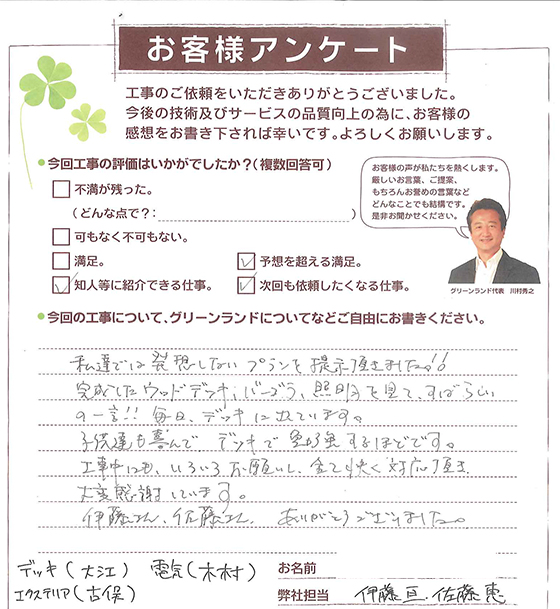 お客様アンケート
工事のご依頼をいただきありがとうございました。
今後の技術及びサービスの品質向上の為に、お客様の
感想をお書き下されば幸いです。よろしくお願いします。
●今回工事の評価はいかがでしたか?(複数回答可)
不満が残った。
(どんな点で?:
)
可もなく不可もない。
満足。
予想を超える満足。
知人等に紹介できる仕事。
次回も依頼したくなる仕事。
お客様の声が私たちを熱くします。
厳しいお言葉、ご提案、
もちろんお誉めの言葉など
どんなことでも結構です。
是非お聞かせください。
グリーンランド代表 川村秀之
●今回の工事について、グリーンランドについてなどご自由にお書きください。
私達では発想しないプランを提示頂きました!!
完成したウッドデッキ、パーゴラ、照明を見て、すばらしい
の一言!! 毎日、デッキに出ています。
子供達も喜んで デッキで勉強するほどです。
工事中にも、いろいろお願いし、全て快く対応頂き
大変感謝しています。
伊藤さん、佐藤さん、ありがとうございました。
デッキ(大江) 電気(木村)
エクステリア(古保)
お名前
弊社担当 伊藤亘.佐藤恵